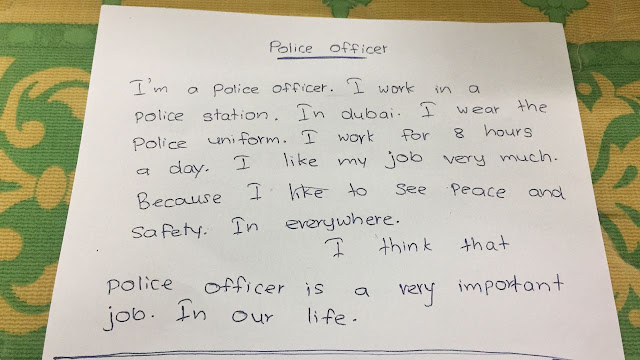 Police officer
I'm a Police officer. I work in a
police station. In dubai. I wear the
Police uniform. I work for 8 hours
a day. I like my job very much.
Because I like to see Peace and
Safety. In everywhere.
I think that
police officer is a very important
job. In our life.